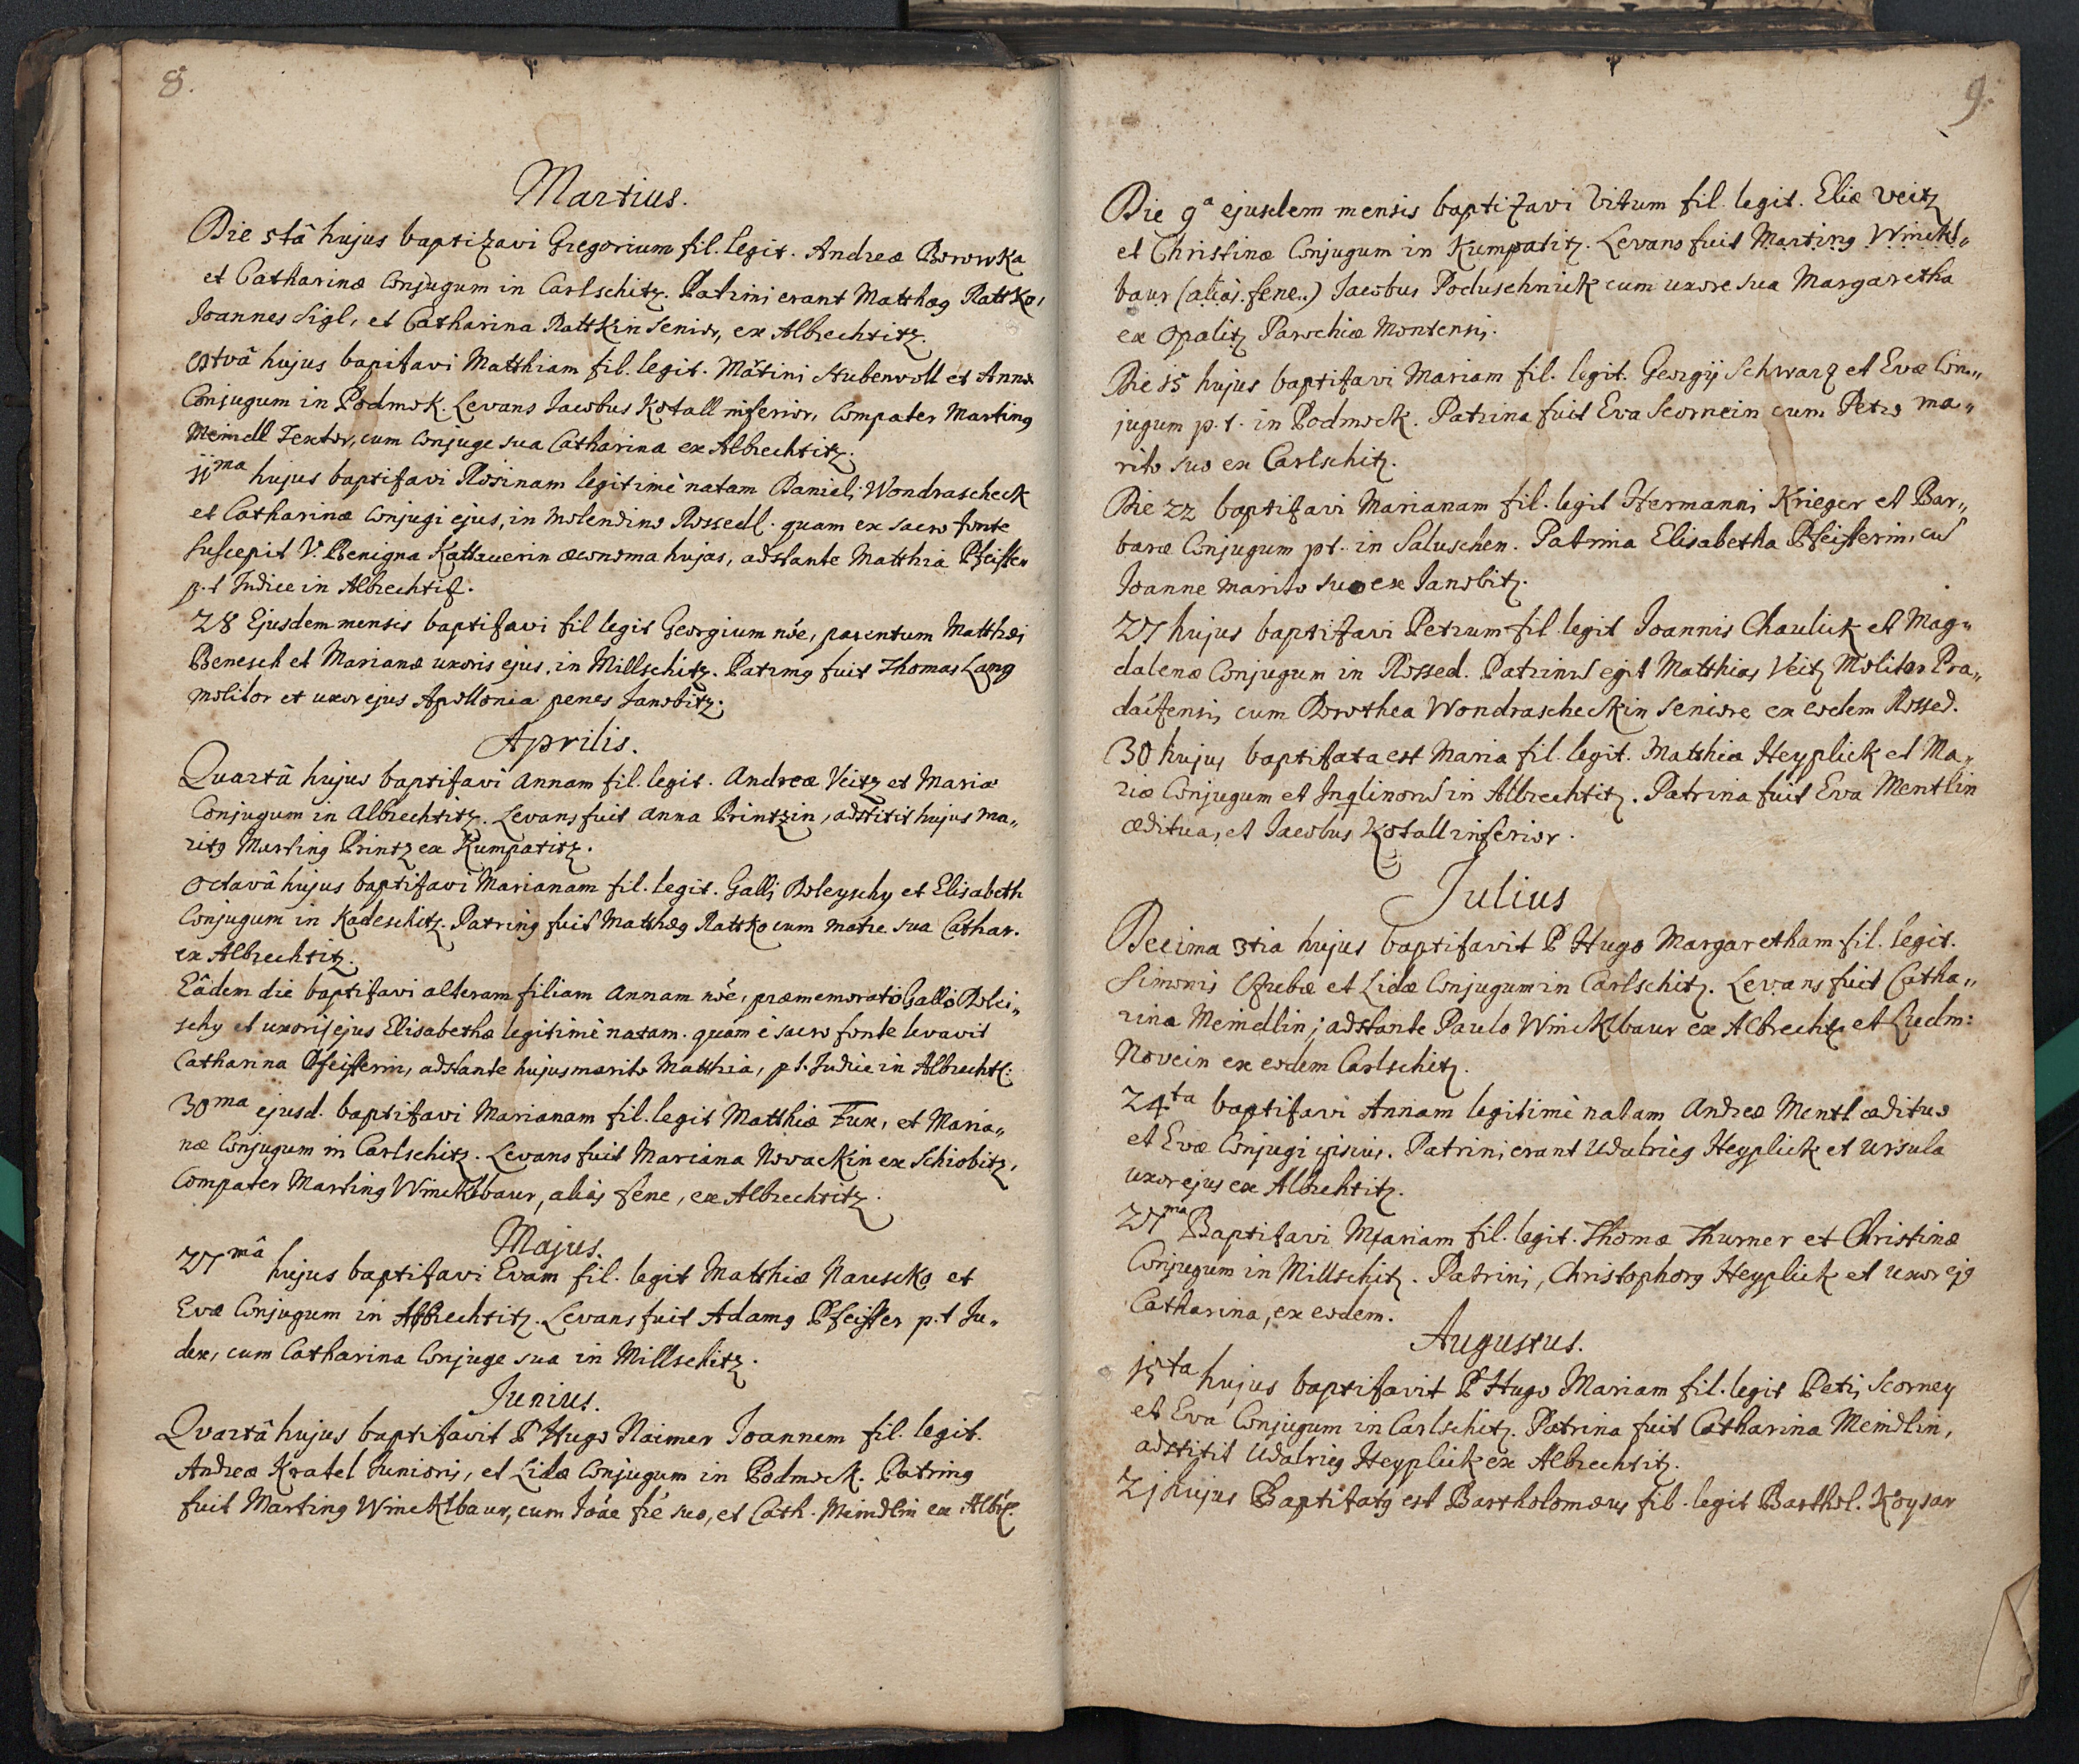 8.
Martius.
Die 5tâ hujus baptizavi Gregorium fil. legit. Andreæ Borowka
et Catharinæ Conjugum in Carlschitz. Patrini erant Matthæg Rattko,
Joannes Sigl, et Catharina Rattkin senior, ex Albrechtitz.
octvâ hujus bapitavi Matthiam fil. legit. Mãrtini Stubenvoll et Annæ
Conjugum in Podmok. Levans Jacobus Kotall inferior, Compater Marting
Meindl Textor, cum Conjuge sua Catharina ex Albrechtitz.
11ma hujus baptifavi Rosinam legitimè natam Danieli Wondrascheck
et Catharinæ Conjugi ejus, in Molendino Rossedl. quam ex sacro fonte
suscepit V. Benigna Kattauerin œconoma hujas, adstante Matthia Pfeiffer
p.t Judice in Albrechtiz.
28 Ejusdem mensis baptifavi fil legit Georgium nõe, parentum Matthæi
Benesch et Marianæ uxoris ejus, in Millschitz. Patring fuit Thomas Lang
Molitor et uxor ejus Apollonia penes Janobitz.
Aprilis.
Quartâ hujus baptifavi Annam fil. legit. Andreæ Veitz et Mariæ
Conjugum in Albrechtitz. Levans fuit Anna Printzin, adstitit hujus ma„
ritg Marting Printz ex Kumpatitz.
Octavâ hujus baptifavi Marianam fil. legit. Galli Doleyschy et Elisabeth
Conjugum in Kadeschitz. Patring fuit Matthæg Rattko cum matre sua Cathar.
ex Albrechtitz.
Eâdem die baptifavi alteram filiam Annam nõe, præmemorato Gallo Dolei„
schy et uxori ejus Elisabethæ legitimè natam. quam è sacro fonte levavit
Catharina Pfeifferin, adstante hujus marito Matthia, p t. Judice in Albrechtz:
30ma ejusd. baptifavi Marianam fil. legit Matthiæ Fux, et Maria„
næ Conjugum in Carlschitz. Levans fuit Mariana Novackin ex Schiobitz,
Compater Marting Wincklbaur, aliàs sene, ex Albrechtitz.
Majus.
27mâ hujus baptifavi Evam fil. legit Matthiæ Nauscko et
Evæ Conjugum in Albrechtitz. Levans fuit Adamg Pfeiffer p.t Ju„
dex, cum Catharina Conjuge sua in Millschitz.
Junius.
Quartâ hujus baptifavit P Hugo Naimer Joannem fil. legit.
Andreæ Kratel Junioris, et Lidæ Conjugum in Podmock. Patring
fuit Marting Wincklbaur, cum Joãe frẽ suo, et Cath. Meindlin ex Albrz.
9.
Die 9a ejusdem mensis baptizavi Vitum fil. legit. Eliæ Veitz
et Christinæ Conjugum in Kumpatitz. Levans fuit Marting Winckl„
baur (aliàs. sene..) Jacobus Poduschnick cum uxore sua Margaretha
ex Opalitz Parochiæ Montensis.
Die 15 hujus baptifavi Mariam fil. legit. Georgij Schwarz et Evæ Con„
jugum p.t. in Podmock. Patrina fuit Eva Scornein cum Petro ma„
rito suo ex Carlschitz.
Die 22 baptifavi Marianam fil. legit Hermanni Krieger et Bar„
baræ Conjugum pt. in Saluschen. Patrina Elisabetha Pfeifferin, cũ
Joanne marito suo ex Janobitz.
27 hujus baptifavi Petrum fil. legit Joannis Chaulick et Mag„
dalenæ Conjugum in Rossed. Patrinũ egit Matthias Veitz Molitor Pra„
daifensis cum Dorothea Wondrascheckin seniore ex eodem Rossed.
30 hujus baptifata est Maria fil. legit. Matthiæ Heyplick et Ma„
riæ Conjugum et Inqlinorũ in Albrechtitz. Patrina fuit Eva Mentlin
æditua, et Jacobus Kotall inferior.
Julius
Decima 3tia hujus baptifavit P Hugo Margaretham fil. legit.
Simonis et Lidæ Conjugum in Carlschitz. Levans fuit Catha„
rina Meindlin, adstante Paulo Wincklbaur ex Albrechtz et Ludm:
Novein ex eodem Carlschitz.
24ta baptifavi Annam legitimè natam Andreæ Mentl ædituo
et Evæ Conjugi ipsius. Patrini erant Udalricg Heyplick et Ursula
uxor ejus ex Albrehtitz.
27ma Baptifavi Mariam fil. legit. Thomæ Thurner et Christinæ
Conjugum in Millschitz. Patrini, Christophorg Heyplick et uxor ejg
Catharina, ex eodem.
Augustus.
15ta hujus baptifavit P Hugo Mariam fil. legit Petri Scorney
et Eva Conjugum in Carlschitz. Patrina fuit Catharina Meindlin,
adstitit Udalricg Heyplick ex Albrechtitz.
21 hujus Baptifatg est Bartholomæus fil. legit Barthol. Koysar